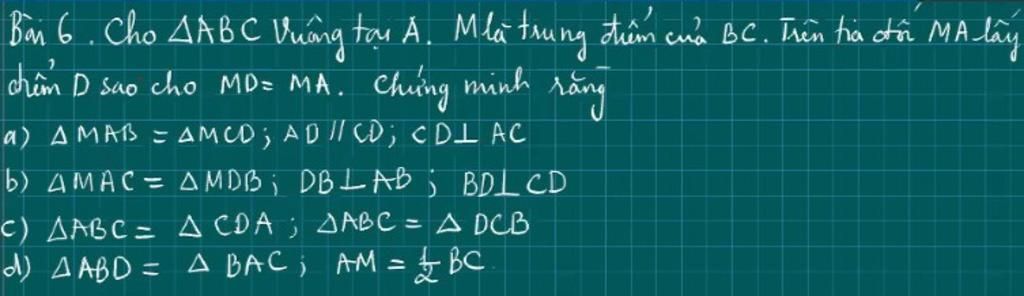 Bài 6. Cho △ABC vuông tại A. M là trung điểm của BC. Trên tia đối MA lấy
điểm D sao cho MD = MA. Chứng minh rằng
a) △MAB = △MCD; AD // CD; CD ⊥ AC
b) △MAC = △MDB; DB ⊥ AB; BD ⊥ CD
c) △ABC = △CDA; △ABC = △DCB
d) △ABD = △BAC; AM = 1/2 BC